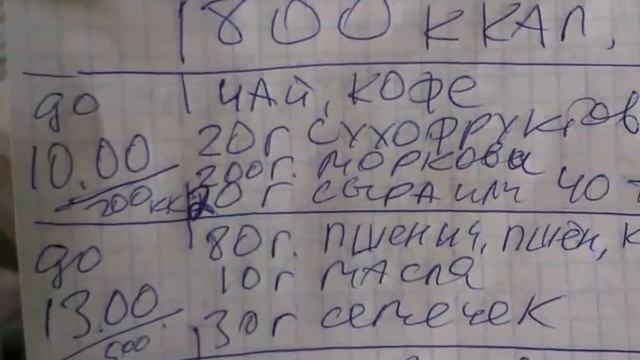 1800 ККАЛ,
до ЧАЙ, КОФЕ
20г СУХОФРУКТОВ
10.00 200г. МОРКОВЫ
200кк 20г СЫРА ИЛИ 40
до 80г. ПШЕНИЧ, ПШЕН, К
10г МАСЛА
13.00 30г семечек
500